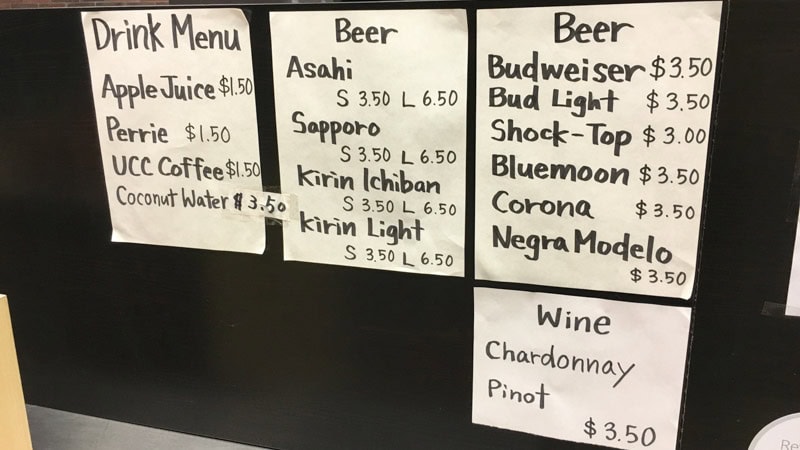 Drink Menu
Apple Juice $1.50
Perrie $1.50
UCC Coffee $1.50
Coconut Water $3.50
Beer
Asahi
S 3.50 L 6.50
Sapporo
S 3.50 L 6.50
Kirin Ichiban
S 3.50 L 6.50
kirin Light
S 3.50 L 6.50
Beer
Budweiser $3.50
Bud Light $3.50
Shock-Top $3.00
Bluemoon $3.50
Corona $3.50
Negra Modelo
$3.50
Wine
Chardonnay
Pinot
$3.50